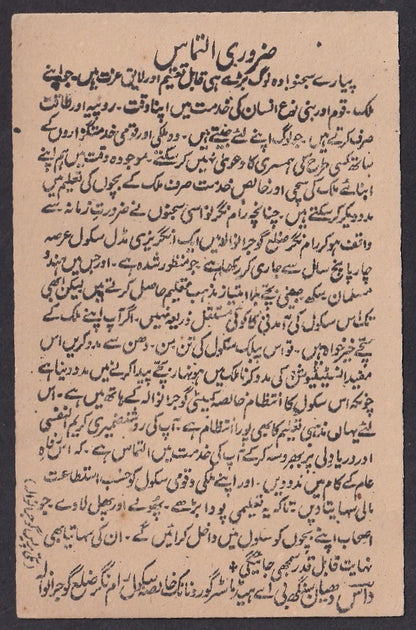 ضروری التماس
پیارے سجنو! وہ لوگ بڑے ہی قابل تعظیم اور لایق عزت ہیں۔ جو اپنے
ملک۔ قوم اور بنی نوع انسان کی خدمت میں اپنا وقت۔ روپیہ اور طاقت
صرف کرتے ہیں۔ جو لوگ اپنے لئے جیتے ہیں۔ وہ ملکی اور قومی خدمتگزاروں کے
ساتھ کسی طرح کی ہمسری کا دعویٰ نہیں کر سکتے۔ موجودہ وقت میں ہم اپنے
ابنائے ملک کی سچی اور خالص خدمت صرف ملک کے بچوں کی تعلیم میں
مدد دیکر کر سکتے ہیں۔ چنانچہ رام نگر نواسی سجنوں نے ضرورت زمانہ سے
واقف ہو کر رام نگر ضلع گوجرانوالا میں ایک انگریزی مڈل سکول عرصہ
چار پانچ سال سے جاری کر رکھا ہے۔ جو منظور شدہ ہے۔ اور جس میں ہندو
مسلمان سکھ جینی بچے بلا امتیاز مذہب تعلیم حاصل کرتے ہیں لیکن ابھی
تک اس سکول کی آمدنی کا کوئی مستقل ذریعہ نہیں۔ اگر آپ اپنے ملک کے
سچے خیر خواہ ہیں۔ تو اس پبلک سکول کی تن۔ من۔ دھن سے مدد کریں اس
مفید انسٹیٹیوشن کی مدد کرنا ملک میں ہونہار بچے پیدا کرنے میں مدد دینا ہے
چونکہ اس سکول کا انتظام خالصہ کمیٹی گوجرانوالہ کے ہاتھ میں ہے۔ اس
لئے یہاں مذہبی تعلیم کا بھی پورا انتظام ہے۔ آپ کی روشنضمیری کریم النفسی
اور دریا دلی پر بھروسہ کر کے آپ کی خدمت میں التماس ہے۔ کہ اس رفاہ
عام کے کام میں مدد دیں۔ اور اپنے ملکی و قومی سکول کو حسب استطاعت
مالی سہایتا دیں تا کہ یہ تعلیمی پودا بڑھے۔ پھولے اور پھل لاوے۔ جو
اصحاب اپنے بچوں کو سکول میں داخل کرائیں گے۔ ان کی سہایتا بھی
نہایت قابل قدر سمجھی جائیگی
داس دھیان سنگھ بی اے ہیڈ ماسٹر گورونانک خالصہ سکول رام نگر ضلع گوجرانوالہ